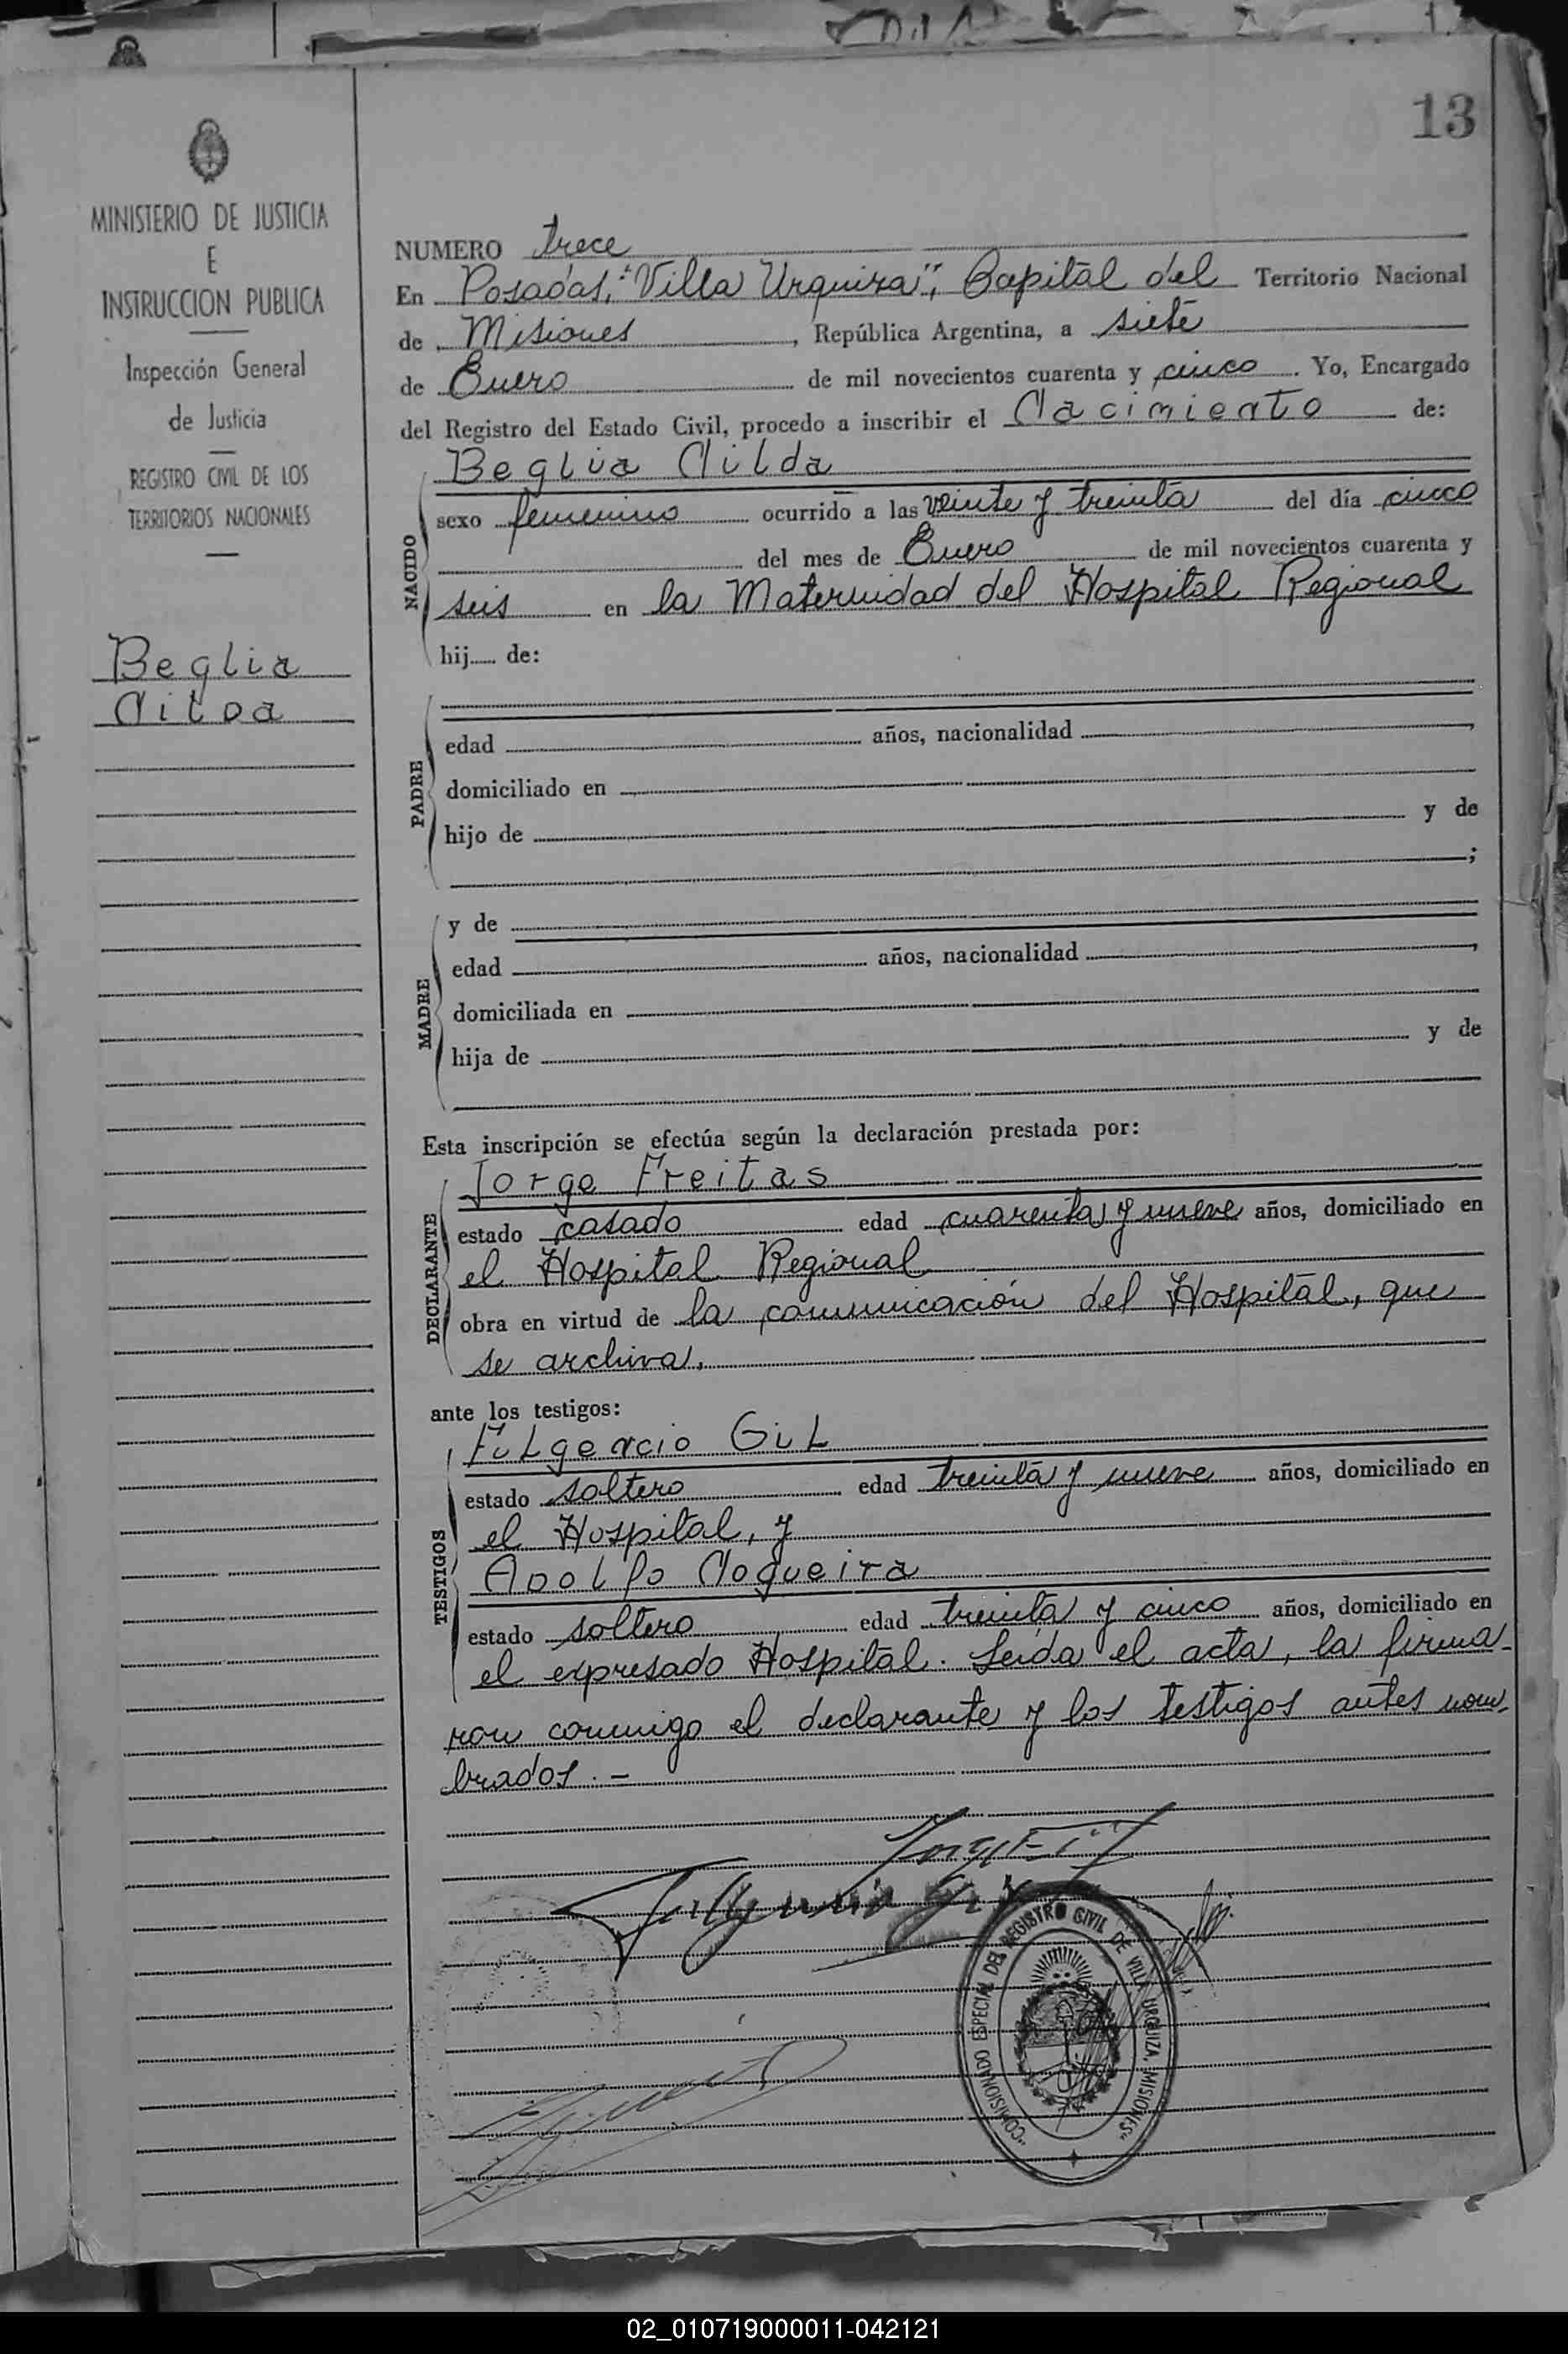 13
MINISTERIO DE JUSTICIA
E
INSTRUCCION PUBLICA
Inspección General
de Justicia
REGISTRO CIVIL DE LOS
TERRITORIOS NACIONALES
Beglia
Nilda
NUMERO trece
En Posadas, "Villa Urquiza", Capital del Territorio Nacional
de Misiones, República Argentina, a siete
de Enero de mil novecientos cuarenta y cinco. Yo, Encargado
del Registro del Estado Civil, procedo a inscribir el Nacimiento de:
NACIDO
Beglia Nilda
sexo femenino ocurrido a las veinte y treinta del día cinco
del mes de Enero de mil novecientos cuarenta y
seis en la Maternidad del Hospital Regional
hij..... de:
PADRE
edad años, nacionalidad ,
domiciliado en
hijo de y de
;
MADRE
y de
edad años, nacionalidad ,
domiciliada en
hija de y de
Esta inscripción se efectúa según la declaración prestada por:
DECLARANTE
Jorge Freitas
estado casado edad cuarenta y nueve años, domiciliado en
el Hospital Regional
obra en virtud de la comunicación del Hospital, que
se archiva.
ante los testigos:
TESTIGOS
Fulgencio Gil
estado soltero edad treinta y nueve años, domiciliado en
el Hospital, y
Adolfo Nogueira
estado soltero edad treinta y cinco años, domiciliado en
el expresado Hospital. Leída el acta, la firma-
ron conmigo el declarante y los testigos antes nom-
brados. -
"COMISIONADO ESPECIAL DEL REGISTRO CIVIL DE VILLA URQUIZA, MISIONES"
02_010719000011-042121